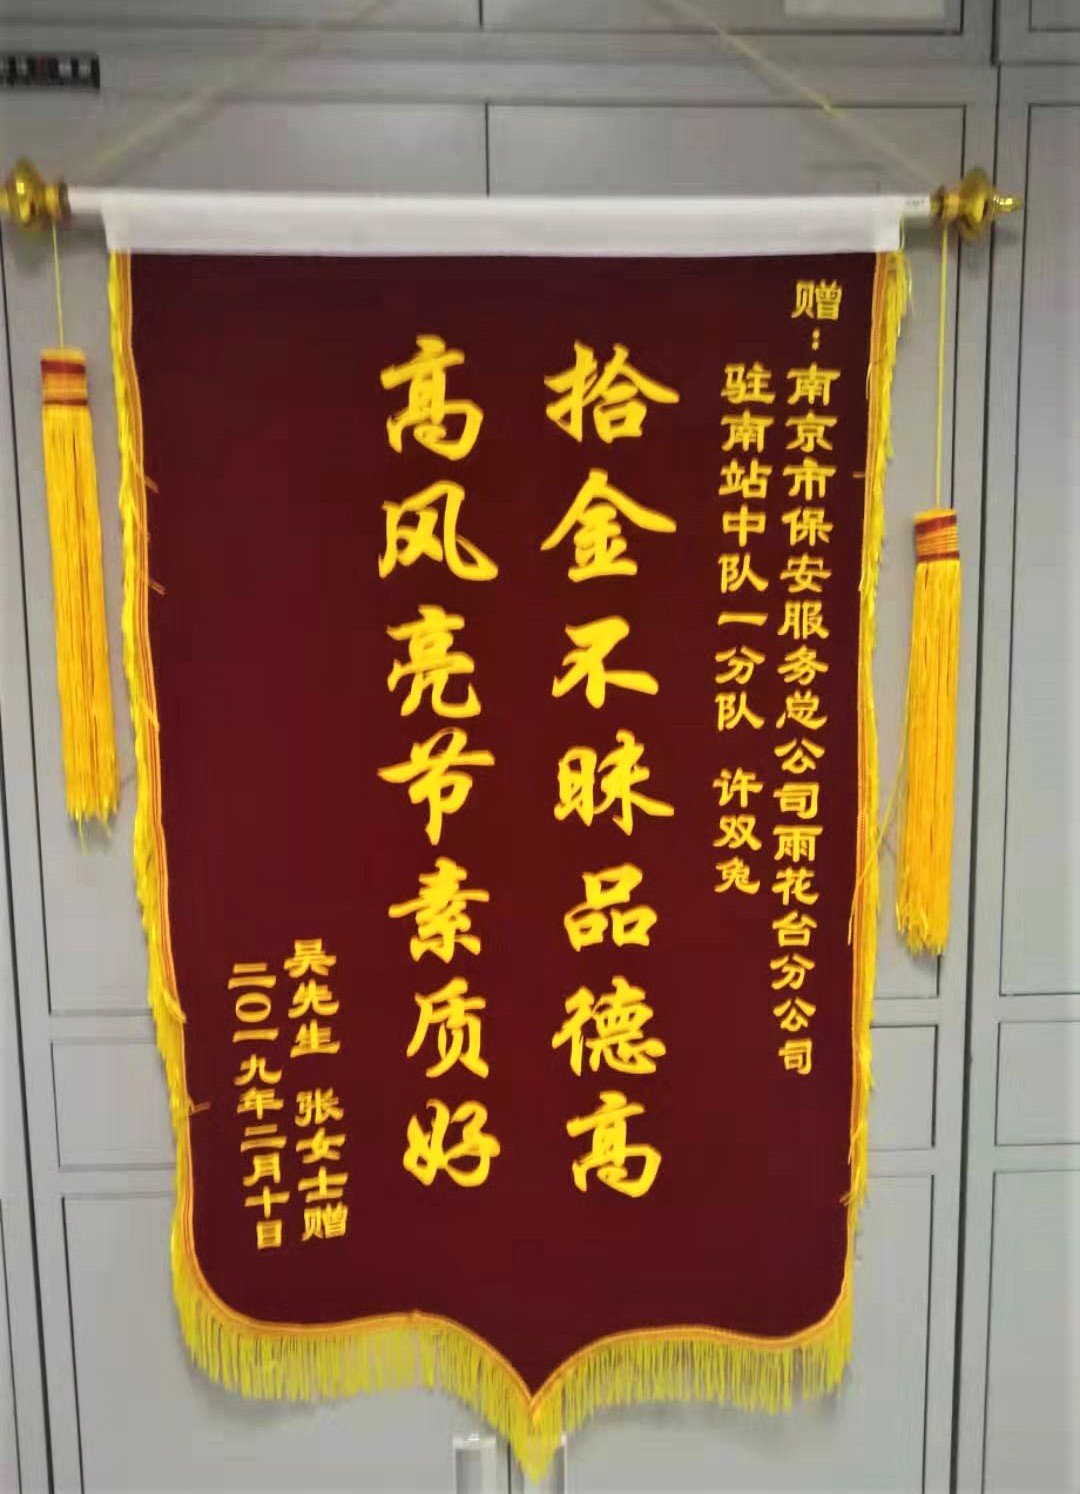 赠：南京市保安服务总公司雨花台分公司
驻南站中队一分队 许双兔
拾金不昧品德高
高风亮节素质好
吴先生 张女士赠
二〇一九年二月十日